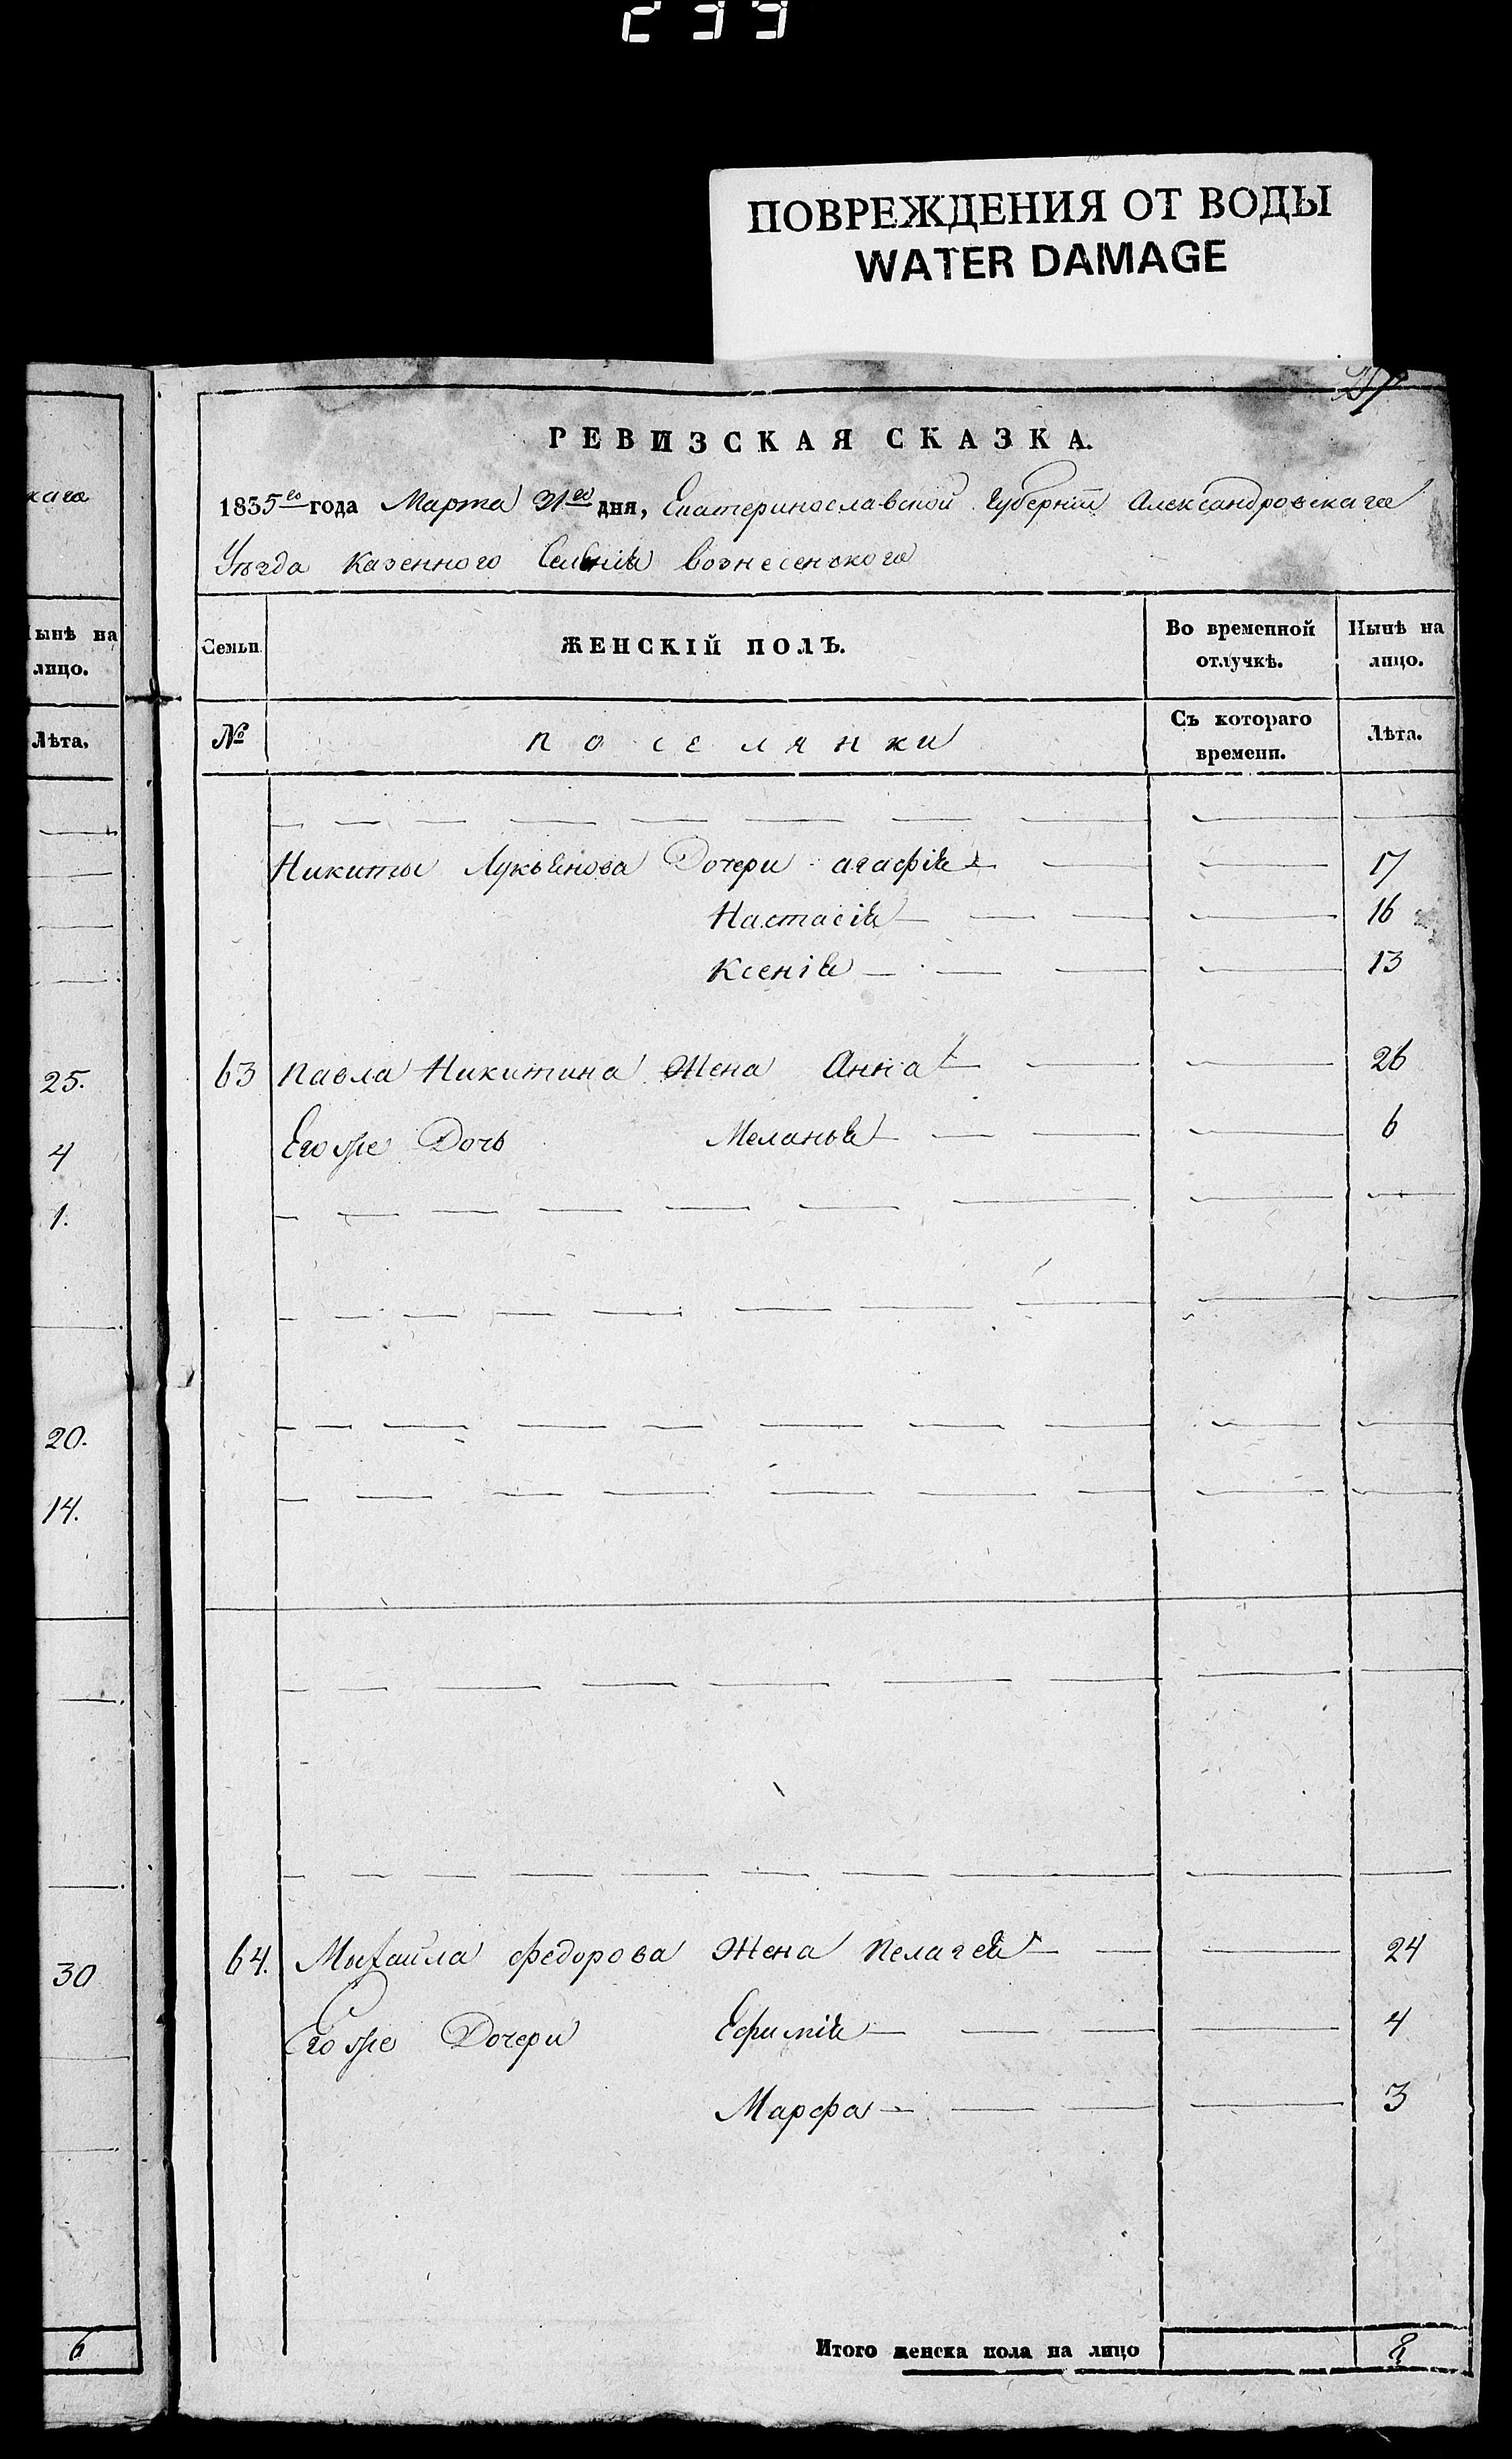 ПОВРЕЖДЕНИЯ ОТ ВОДЫ
WATER DAMAGE
каго
Нынѣ на
лицо.
Лѣта.
25.
4
1.
20.
14.
30
6
РЕВИЗСКАЯ СКАЗКА.
1835го года Марта 31го дня, Екатеринославской Губерніи Александровскаго
Уезда Казенного Селенія вознесенского
Семьи
ЖЕНСКІЙ ПОЛЪ.
Во временной отлучкѣ.
Нынѣ на лицо.
№
поселянки
Съ котораго времени.
Лѣта.
Никиты Лукьянова Дочери агафія 17
Настасія 16
Ксенія 13
63 Павла Никитина Жена Анна 26
Егоже Дочь Меланья 6
64. Михаила федорова Жена Пелагея 24
Егоже Дочери Ефимія 4
Марфа 3
Итого женска пола на лицо 8